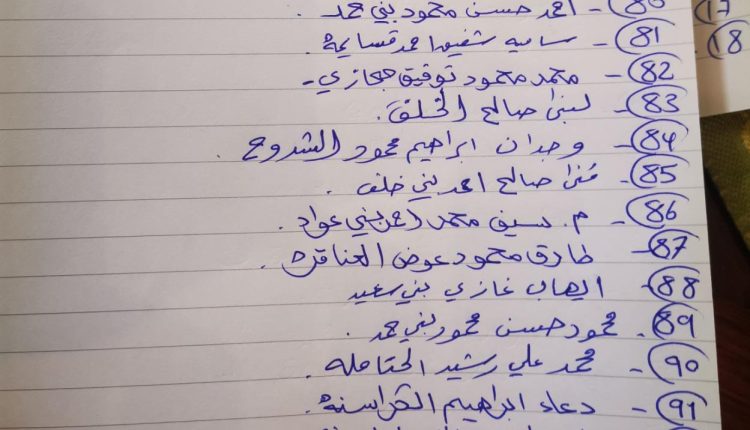 80 - احمد حسن محمود بني حمد
81 - ساميه شفيق احمد قسايمة
82 - محمد محمود توفيق حجازي -
83 - لبنى صالح الخلف.
84 - وجدان ابراهيم محمود الشدوح.
85 - صالح احمد بني خلف.
86 - م. سيف محمد احمد بني عواد.
87 - طارق محمود عوض العناقره.
88 - ايهاب غازي بني سعيد
89 - محمود حسن محمود بني حمد.
90 - محمد علي رشيد الحتامله.
91 - دعاء ابراهيم الكراسنه.
17
18